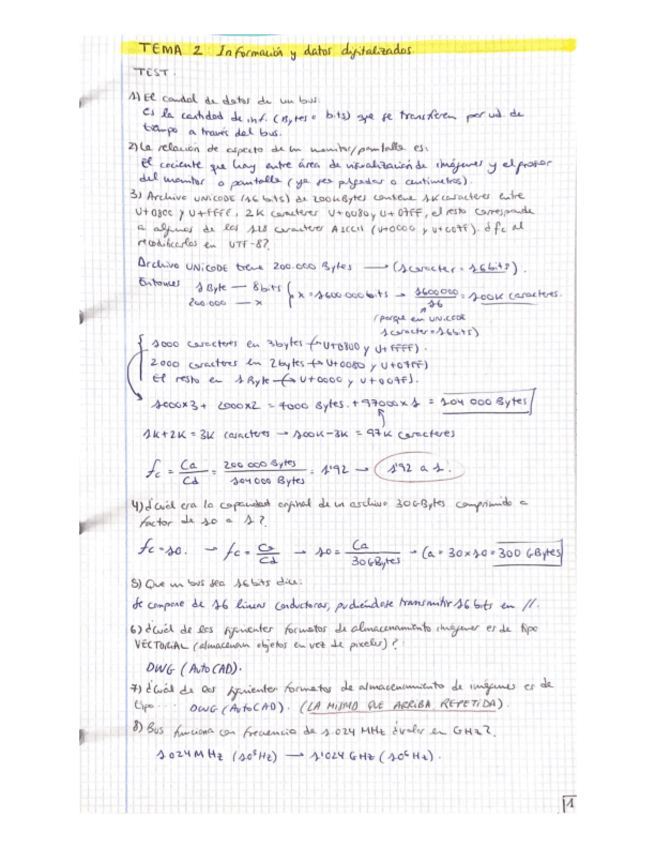 TEMA 2 Información y datos digitalizados.
TEST.
1) El caudal de datos de un bus:
Es la cantidad de inf. (Bytes o bits) que se transfieren por ud. de
tiempo a través del bus.
2) La relación de aspecto de un monitor/pantalla es:
El cociente que hay entre área de visualización de imágenes y el
del monitor o pantalla (ya sea pulgadas o centímetros).
3) Archivo UNICODE (16 bits) de 200KBytes contiene 1K caracteres entre
U+0800 y U+FFFF, 2K caracteres U+0080 y U+07FF, el resto corresponde
a algunos de los 128 caracteres ASCII (U+0000 y U+007F). d fc al
recodificarlos en UTF-8?
Archivo UNICODE tiene 200.000 Bytes → (1 caracter = 16 bits).
Entonces 1 Byte — 8 bits
200.000 — x } x = 1600000 bits → 1600000/16 = 100K caracteres.
(porque en UNICODE
1 caracter = 16 bits)
1000 caracteres en 3 bytes (→ U+0800 y U+FFFF).
2000 caracteres en 2 bytes (→ U+0080 y U+07FF)
El resto en 1 Byte (→ U+0000 y U+007F).
1000x3 + 2000x2 = 7000 Bytes. + 97000x1 = 104 000 Bytes
1K+2K = 3K caracteres → 100K-3K = 97K caracteres
fc = Ca/Cd = 200 000 Bytes/104 000 Bytes = 1'92 → 1'92 a 1.
4) ¿Cuál era la capacidad original de un archivo 30GBytes comprimido a
factor de 10 a 1?
fc = 10. → fc = Ca/Cd → 10 = Ca/30GBytes → Ca = 30x10 = 300 GBytes
5) Que un bus sea 16 bits dice:
Se compone de 16 líneas conductoras, pudiéndose transmitir 16 bits en //.
6) ¿Cuál de los siguientes formatos de almacenamiento imágenes es de tipo
VECTORIAL (almacenan objetos en vez de píxeles)?:
DWG (AutoCAD).
7) ¿Cuál de los siguientes formatos de almacenamiento de imágenes es de
tipo ... DWG (AutoCAD). (LA MISMO QUE ARRIBA REPETIDA).
8) Bus funciona con frecuencia de 1.024 MHz ¿valor en GHz?
1.024 MHz → 1'024 GHz
1